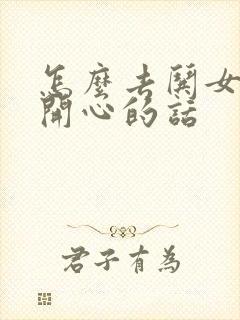 怎麼去鬨女
開心的話
君子有為